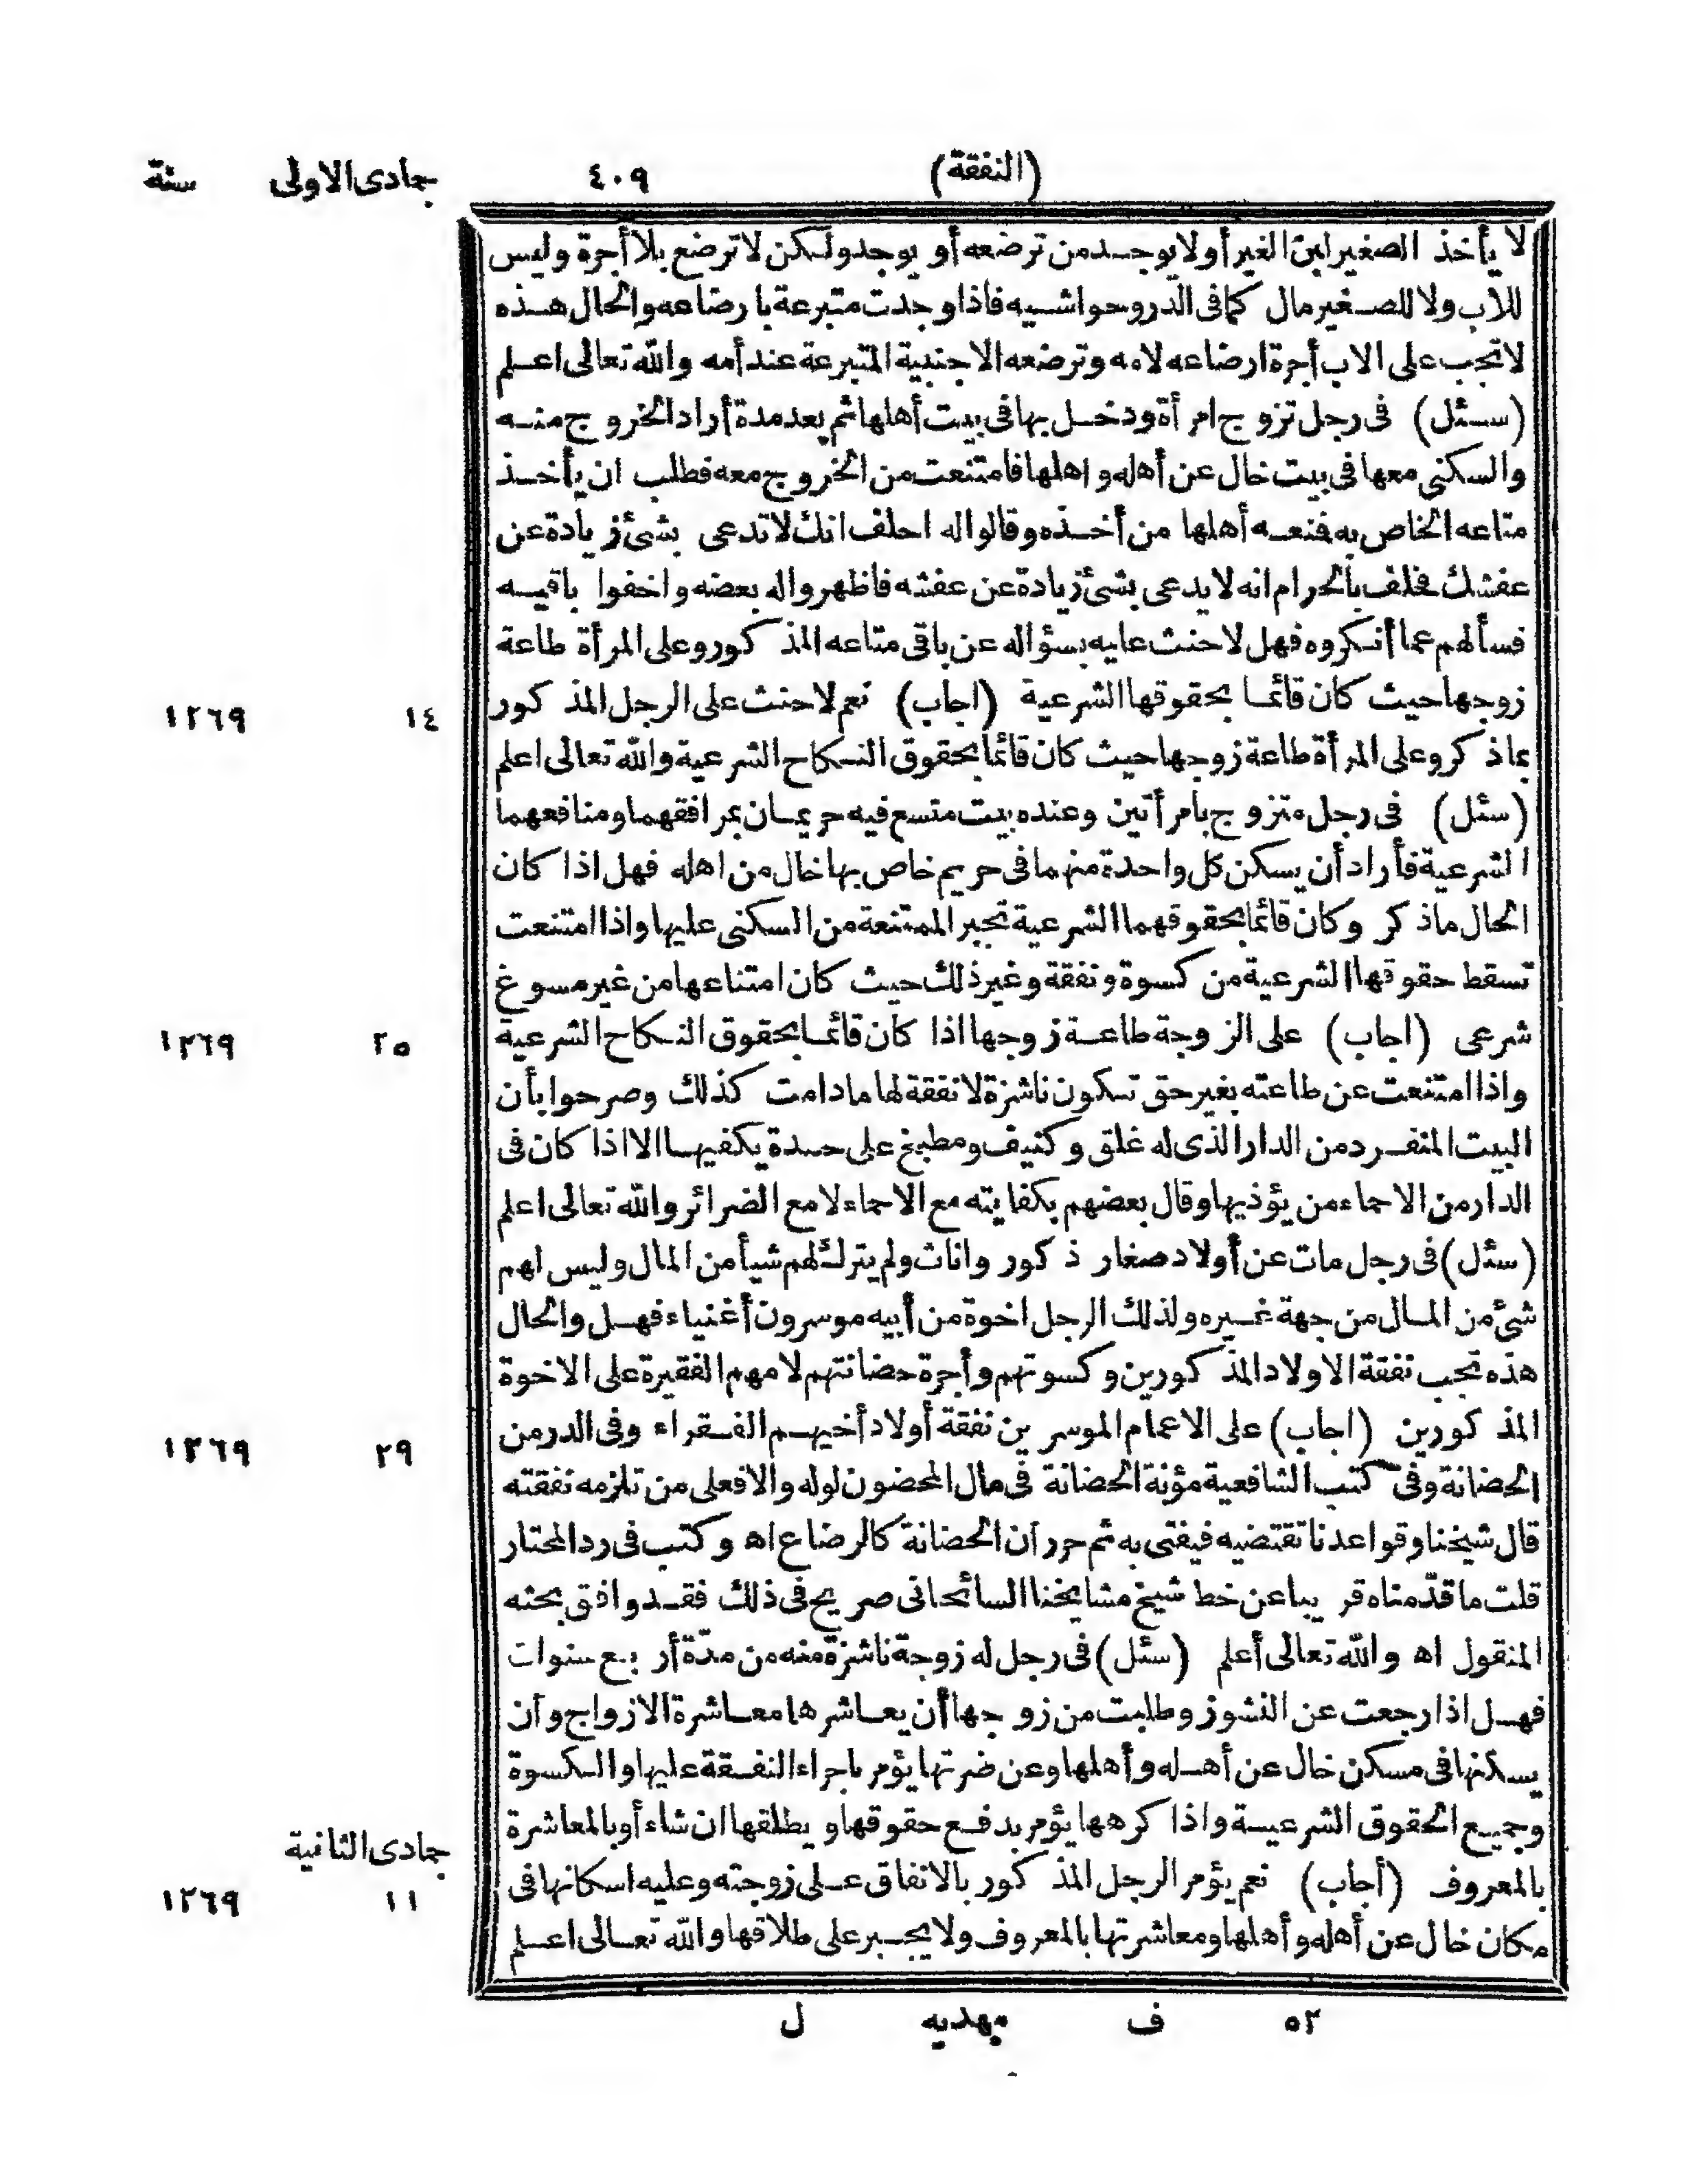 (النفقة) ٤٠٩ جمادى الاولى سنة
لا يأخذ الصغير لبن الغير أو لا يوجد من ترضعه أو يوجد ولكن لا ترضع بلا أجرة وليس
للاب ولا للصغير مال كما فى الدر وحواشيه فاذا وجدت متبرعة بارضاعه والحال هذه
لا تجب على الاب أجرة ارضاعه لامه وترضعه الاجنبية المتبرعة عند أمه والله تعالى اعلم
(سئل) فى رجل تزوج امرأة ودخل بها فى بيت أهلها ثم بعد مدة أراد الخروج منه
والسكنى معها فى بيت خال عن أهله واهلها فامتنعت من الخروج معه فطلب ان يأخذ
متاعه الخاص به فمنعه أهلها من أخذه وقالوا له احلف انك لا تدعى بشئ زيادة عن
عفشك فحلف بالحرام انه لا يدعى بشئ زيادة عن عفشه فاظهروا له بعضه واخفوا باقيه
فسألهم عما أنكروه فهل لا حنث عليه بسؤاله عن باقى متاعه المذكور وعلى المرأة طاعة
زوجها حيث كان قائما بحقوقها الشرعية (اجاب) نعم لا حنث على الرجل المذكور ١٤ ١٢٦٩
بما ذكر وعلى المرأة طاعة زوجها حيث كان قائما بحقوق النكاح الشرعية والله تعالى اعلم
(سئل) فى رجل متزوج بامرأتين وعنده بيت متسع فيه حريمان بمرافقهما ومنافعهما
الشرعية فأراد أن يسكن كل واحدة منهما فى حريم خاص بها خال من اهله فهل اذا كان
الحال ماذكر وكان قائما بحقوقهما الشرعية تجبر الممتنعة من السكنى عليها واذا امتنعت
تسقط حقوقها الشرعية من كسوة ونفقة وغير ذلك حيث كان امتناعها من غير مسوغ
شرعى (اجاب) على الزوجة طاعة زوجها اذا كان قائما بحقوق النكاح الشرعية ٢٥ ١٢٦٩
واذا امتنعت عن طاعته بغير حق تكون ناشزة لا نفقة لها مادامت كذلك وصرحوا بأن
البيت المنفرد من الدار الذى له غلق وكنيف ومطبخ على حدة يكفيها الا اذا كان فى
الدار من الاحماء من يؤذيها وقال بعضهم بكفايته مع الاحماء لا مع الضرائر والله تعالى اعلم
(سئل) فى رجل مات عن أولاد صغار ذكور واناث ولم يترك لهم شيأ من المال وليس لهم
شئ من المال من جهة غيره ولذلك الرجل اخوة من أبيه موسرون أغنياء فهل والحال
هذه تجب نفقة الاولاد المذكورين وكسوتهم وأجرة حضانتهم لامهم الفقيرة على الاخوة
المذكورين (اجاب) على الاعمام الموسرين نفقة أولاد أخيهم الفقراء وفى الدر من ٢٩ ١٢٦٩
الحضانة وفى كتب الشافعية مؤنة الحضانة فى مال المحضون لوله والا فعلى من تلزمه نفقته
قال شيخنا وقواعدنا تقتضيه فيفتى به ثم حرر أن الحضانة كالرضاع اه وكتب فى رد المحتار
قلت ما قدّمناه قريبا عن خط شيخ مشايخنا السائحانى صريح فى ذلك فقد وافق بحثه
المنقول اه والله تعالى أعلم (سئل) فى رجل له زوجة ناشزة منه من مدّة أربع سنوات
فهل اذا رجعت عن النشوز وطلبت من زوجها أن يعاشرها معاشرة الازواج وأن
يسكنها فى مسكن خال عن أهله وأهلها وعن ضرتها يؤمر باجراء النفقة عليها والكسوة
وجميع الحقوق الشرعية واذا كرهها يؤمر بدفع حقوقها ويطلقها ان شاء أو بالمعاشرة
جمادى الثانية
بالمعروف (أجاب) نعم يؤمر الرجل المذكور بالانفاق على زوجته وعليه اسكانها فى ١١ ١٢٦٩
مكان خال عن أهله وأهلها ومعاشرتها بالمعروف ولا يجبر على طلاقها والله تعالى اعلم
٥٢ ف مهديه ل